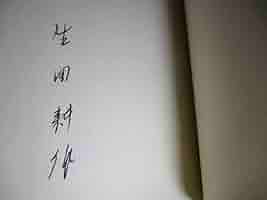 生田耕作